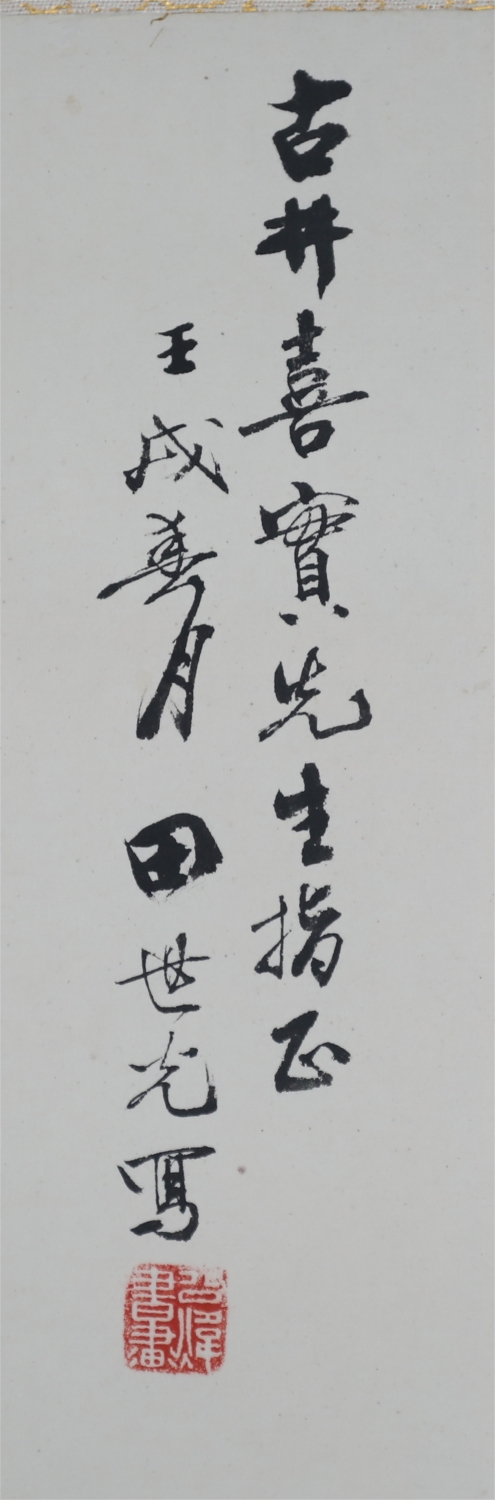 古井喜實先生指正
壬戌春月 田世光寫
書畫